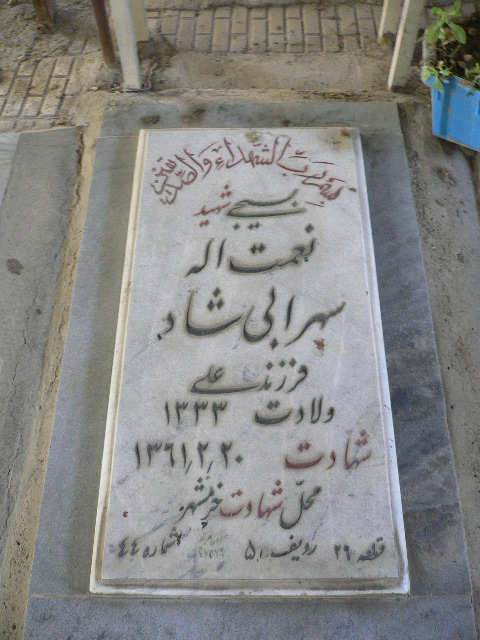 بسم رب الشهداء والصدیقین
بسیجی شهید
نعمت اله
سهرابی شاد
فرزند علی
ولادت ۱۳۳۳
شهادت ۱۳۶۱٫۲٫۲۰
محل شهادت خرمشهر
قطعه ۲۶ ردیف ۵۱ شماره ۴۴